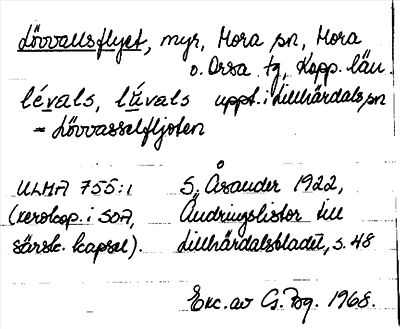 Lövvallsflyet, myr, Mora sn, Mora
o. Orsa tg, Kopp. län
lévals, lúvals uppt. i Lillhärdals sn
= Lövvasselfljoten
ULMA 755:1 S. Åsander 1922,
(xerokop. i SOA, Ändringslistor till
särsk. kapsel). Lillhärdalsbladet, s. 48
Exc. av G. 1968.